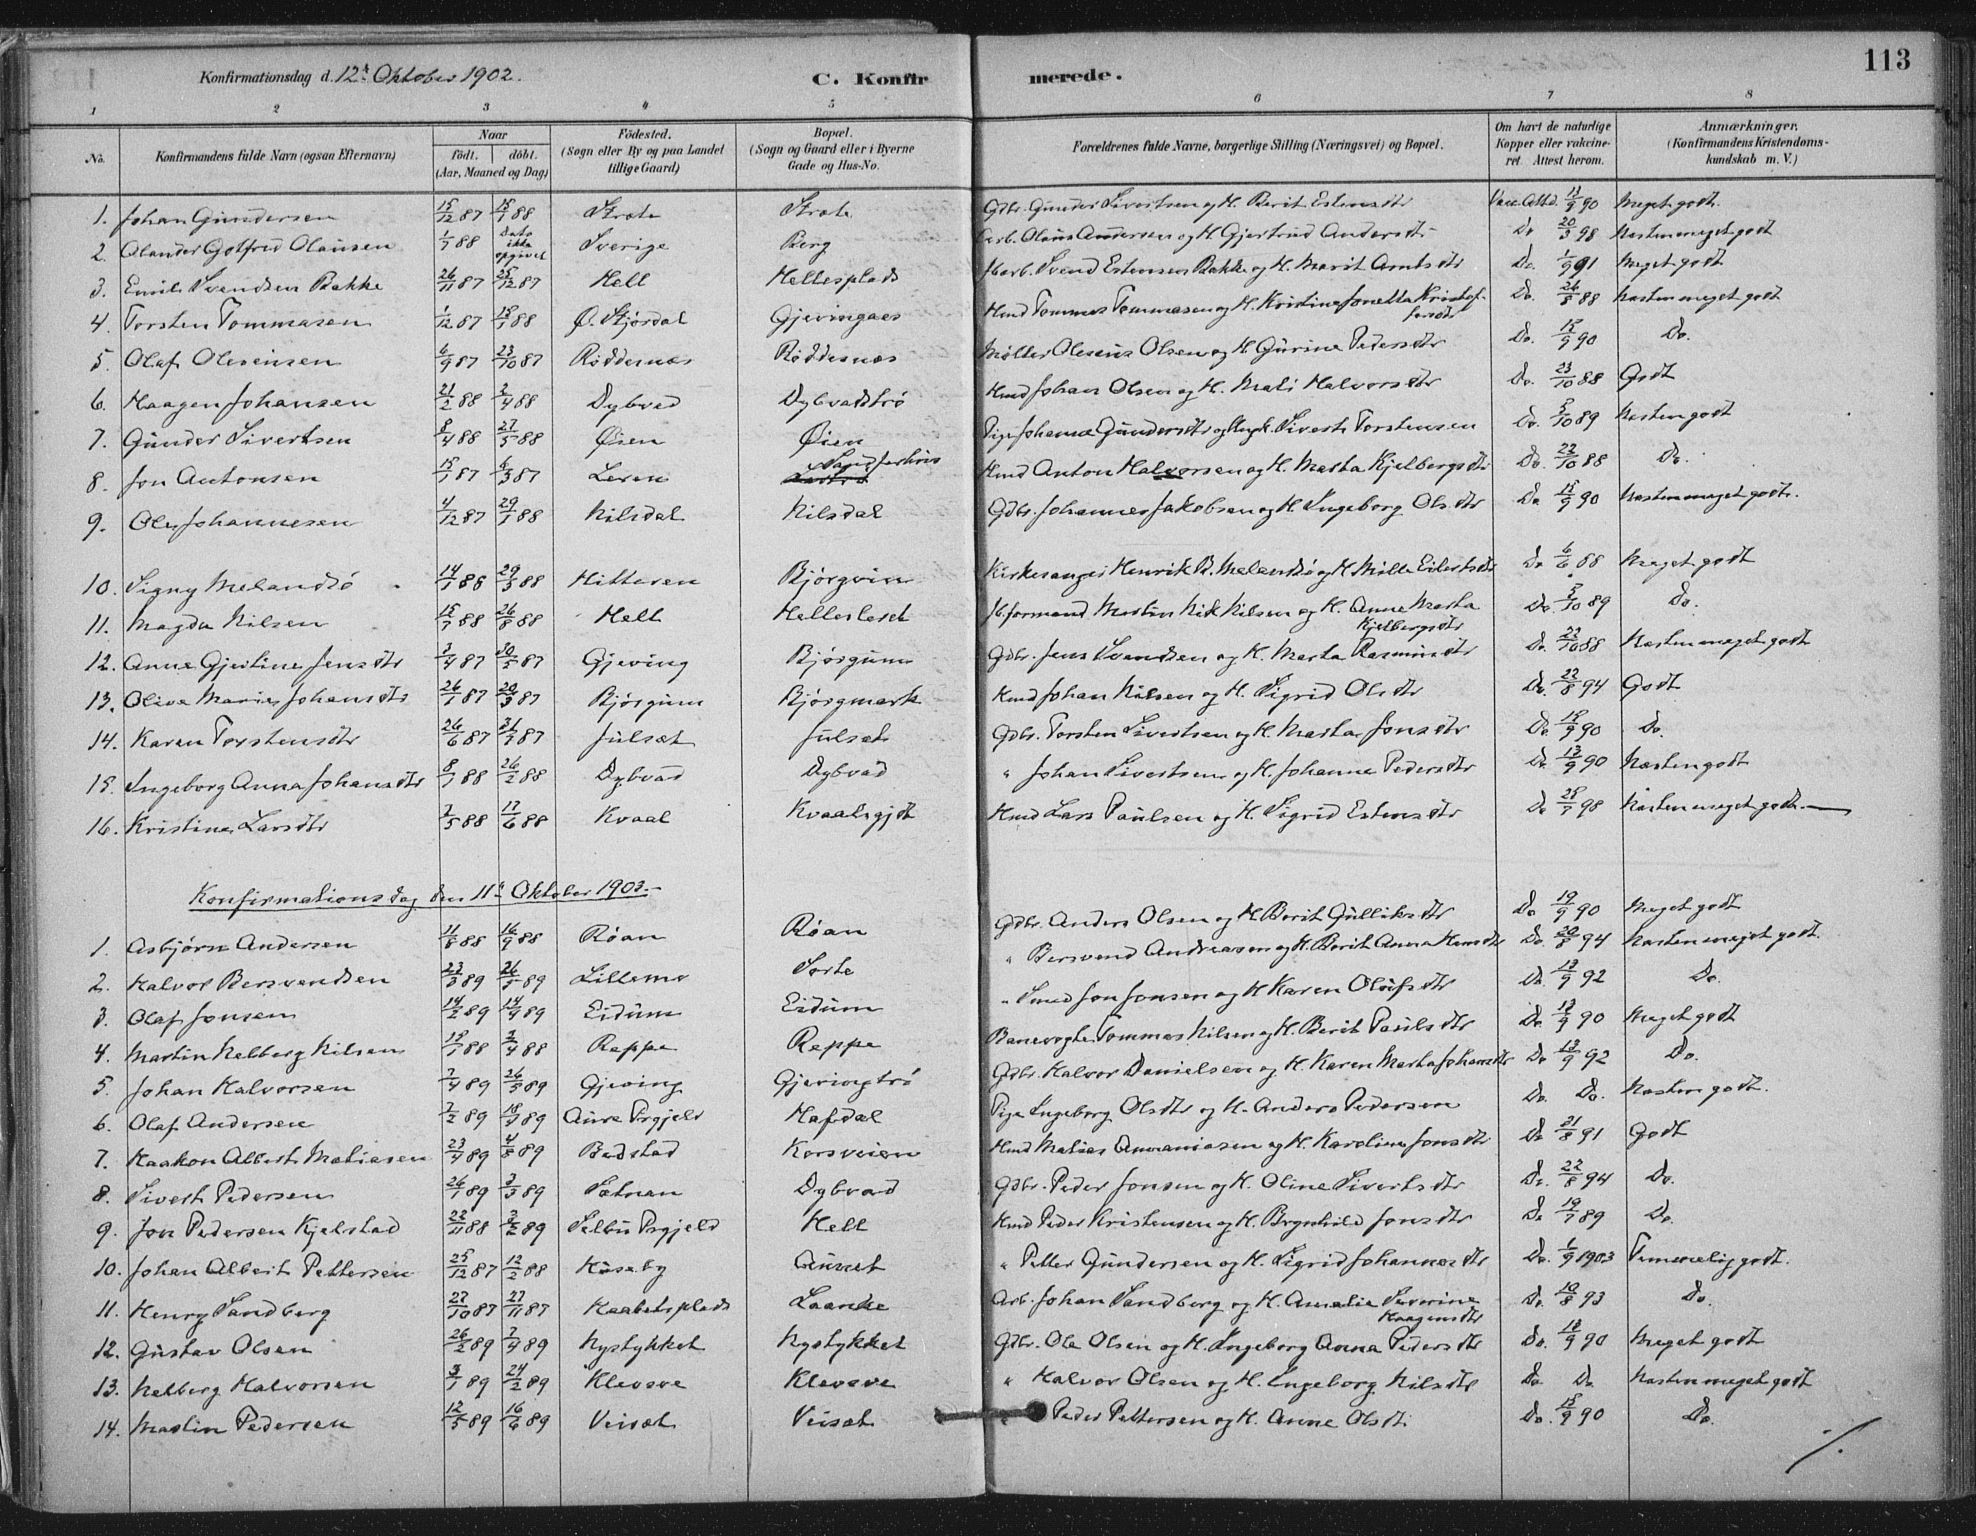 113
Konfirmationsdag d. 12te Oktober 1902.
C. Konfirmerede.
1 2 3 4 5 6 7 8
No. Konfirmandens fulde Navn (ogsaa Efternavn) Naar födt. döbt. (Aar, Maaned og Dag) Födested. (Sogn eller By og paa Landet tillige Gaard) Bopæl. (Sogn og Gaard eller i Byerne Gade og Hus-No. Forældrenes fulde Navne, borgerlige Stilling (Næringsvei) og Bopæl. Om havt de naturlige Kopper eller vakcineret. Attest herom. Anmærkninger. (Konfirmandens Kristendomskundskab m. V.)
1. Johan Gundersen 15/12 87 15/1 88 Gdbr. Gunder Sivertsen og H. Berit Estensdtr Vacc. Att. d. 13/9 90 Meget godt.
2. Olander Gotfred Olausen 1/7 88 Dato ikke opgivet Sverige Berg Arb. Olaus Andersen og H. Gjertrud Andersdtr Do 20/3 98 Næsten meget godt
3. Emil Svendsen Bakke 26/11 87 25/12 87 Hell Hellesplads Svend Estensen Bakke og H. Marit Arntsdtr Do. 1/9 91 Meget godt
4. Torsten Tommasen 1/12 87 15/1 88 Ø. Stjørdal Gjevingaas Hmd Tommas Tommasen og H. Kristine Jonetta Kristofersdtr Do. 26/8 88 Næsten meget godt
5. Olaf Olesensen 6/9 87 23/10 87 Røddesnæs Røddesnæs Møller Oleseus Olsen og H. Gurine Pedersdtr Do. 15/9 90 Do.
6. Haagen Johansen 21/2 88 2/4 88 Dybvad Dybvadstrø Hmd Johan Olsen og H. Mali Halvorsdtr Do. 23/10 88 Godt
7. Gunder Sivertsen 8/4 88 27/5 88 Øien Øien Pige Johanna Gundersdtr og Ungk. Sivert Torstensen Do. 5/10 89 Næsten godt
8. Jon Antonsen 15/1 87 6/3 87 Leren Hmd Anton Halvorsen og H. Marta Kjelbergsdtr Do. 22/10 88 Do.
9. Ole Johannesen 4/12 87 29/1 88 Nilsdal Nilsdal Gdbr. Johannes Jakobsen og H. Ingeborg Olsdtr Do 15/9 90 Næsten meget godt.
10. Signy Melandsø 14/1 88 29/3 88 Hitteren Bjørgvin Kirkesanger Henrik B. Melandsø og H. Mille Eilertsdtr Do 6/6 88 Meget godt
11. Magda Nilsen 15/7 88 26/8 88 Hell Martin Nik Nilsen og H. Anne Marta Kjelbergsdtr Do. 5/10 89 Do.
12. Anne Gjertine Jensdtr 3/4 87 30/5 87 Gjeving Bjørgum Gdbr. Jens Svendsen og H. Marta Rasmusdtr Do. 22/10 88 Næsten meget godt
13. Olive Marie Johansdtr 26/1 87 20/3 87 Bjørgum Bjørgmark Hmd Johan Nilsen og H. Sigrid Olsdtr Do. 22/8 94 Godt
14. Karen Torstensdtr 26/6 87 31/7 87 Julset Julset Gdbr. Torsten Sivertsen og H. Marta Jonsdtr Do. 15/9 90 Do.
15. Ingeborg Anna Johansdtr 8/1 88 26/2 88 Dybvad Dybvad " Johan Sivertsen og H. Johanne Pedersdtr Do. 13/9 90 Næsten godt
16. Kristine Larsdtr 3/5 88 17/6 88 Kvaal Kvaalsgjdt Hmd Lars Paulsen og H. Sigrid Estensdtr Do 28/9 98 Næsten meget godt.
Konfirmationsdag den 11te Oktober 1903.
1. Asbjørn Andersen 11/8 88 16/9 88 Røan Røan Gdbr. Anders Olsen og H. Berit Gulliksdtr Do 19/9 90 Meget godt
2. Halvor Bersvendsen 23/3 89 26/5 89 Lillemo Sorte " Bersvend Andreasen og H. Berit Anna Do. 20/8 94 Næsten meget godt.
3. Olaf Jonsen 14/2 89 14/4 89 Eidum Eidum " Smed Jon Jonsen og H Karen Olufsdtr Do 13/9 92 Do.
4. Martin Helberg Nilsen 15/1 88 2/4 88 Reppe Reppe Banevogte Tommas Nilsen og H. Berit Paulsdtr Do. 13/9 90 Meget godt
5. Johan Halvorsen 7/4 89 26/5 89 Gjeving Gjevingtrø Gdbr. Halvor Danielsen og H. Karen Marta Johansdtr Do 13/9 92 Do.
6. Olaf Andersen 7/2 89 Aure Prgjeld Hafdal Pige Ingeborg Olsdtr og H. Anders Pedersen Do. Do. Næsten godt.
7. Haakon Albert Matiasen 23/4 89 4/8 89 Badstad Korsveien Hmd Matias Ananiasen og H. Karoline Jonsdtr Do 21/8 91 Godt
8. Sivert Pedersen 26/1 89 3/3 89 Sætnan Dybvad Gdbr. Peder Jonsen og H. Oline Sivertsdtr Do. 22/8 94 Do.
9. Jon Pedersen Kjelstad 22/11 88 3/2 89 Selbu Prgjeld Hell Hmd Peder Kristensen og H. Brynhild Jonsdtr Do 19/7 89 Do.
10. Johan Albert Pettersen 25/12 87 12/2 88 Høseby Aunet " Petter Gundersen og H. Sigrid Johannesdtr Do. 1/9 1903 Temmelig godt.
11. Henry Sandberg 27/10 87 27/11 87 Laanke Arb. Johan Sandberg og H. Amalie Severine Haagensdtr Do. 10/8 93 Do.
12. Gustav Olsen 26/2 89 7/4 89 Nystykket Nystykket Gdbr. Ole Olsen og H. Ingeborg Anna Pedersdtr Do. 18/9 90 Meget godt
13. Helberg Halvorsen 3/1 89 24/2 89 Klevsve Klevsve " Halvor Olsen og H. Ingeborg Nilsdtr Do Do Næsten meget godt
14. Martin Pedersen 12/5 89 16/6 89 Veiset Veiset Peder Pettersen og H. Anne Olsdt: Do. 15/9 90 Do.